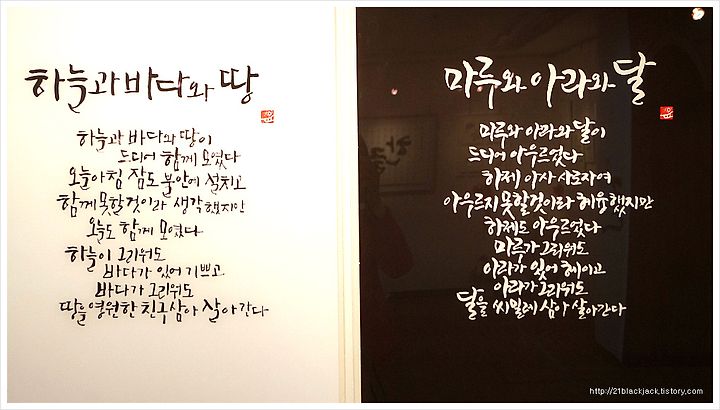 하늘과 바다와 땅
하늘과 바다와 땅이
드디어 함께 모였다
오늘아침 잠도 불안에 설치고
함께 못할것이라 생각했지만
오늘도 함께 모였다
하늘이 그리워도
바다가 있어 기쁘고
바다가 그리워도
땅을 영원한 친구삼아 살아간다
마루와 아라와 달
마루와 아라와 달이
드디어 아우르었다
하제 아사
아우르지 못할것이라 혜윰했지만
하제도 아우르었다
마루가 그리워도
아라가 있어 헤이고
아라가 그리워도
달을 씨밀레 삼아 살아간다
http://21blackjack.tistory.com